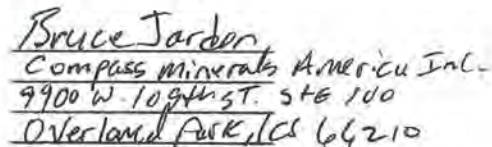 Bruce Jarden
Compass minerals America Inc.
9900 W. 109th ST. StE 100
Overland Park, KS 66210